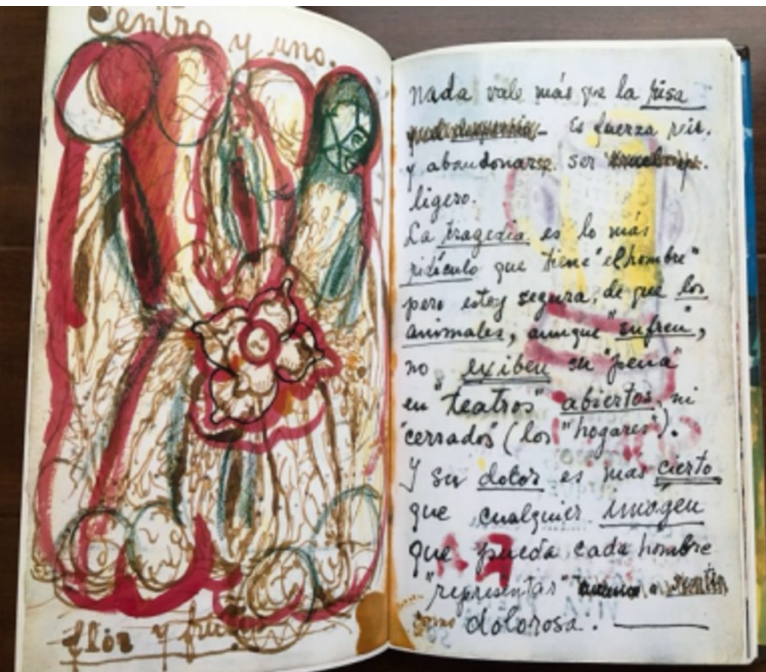 Centro y uno.
flor y fruto
Nada vale más que la risa
Es fuerza reir.
y abandonarse. ser
ligero.
La tragedia es lo más
ridículo que tiene "el hombre"
pero estoy segura, de que los
animales, aunque "sufren",
no exiben su "pena"
en "teatros" abiertos, ni
"cerrados" (los "hogares").
Y su dolor es mas cierto
que cualquier imágen
que pueda cada hombre
"representar"
como dolorosa.